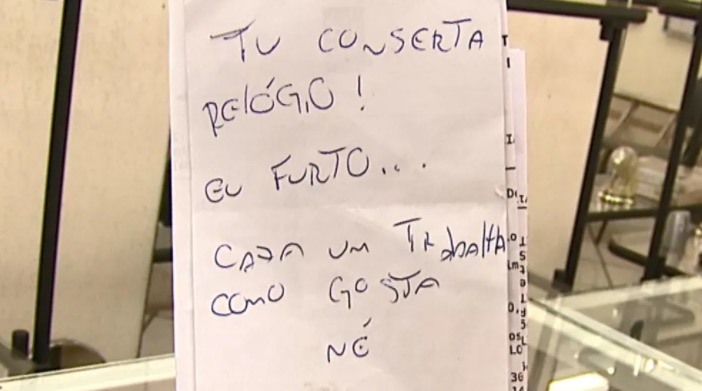 TU CONSERTA
RELÓGIO!
EU FURTO...
CADA UM TRABALHA
COMO GOSTA
NÉ